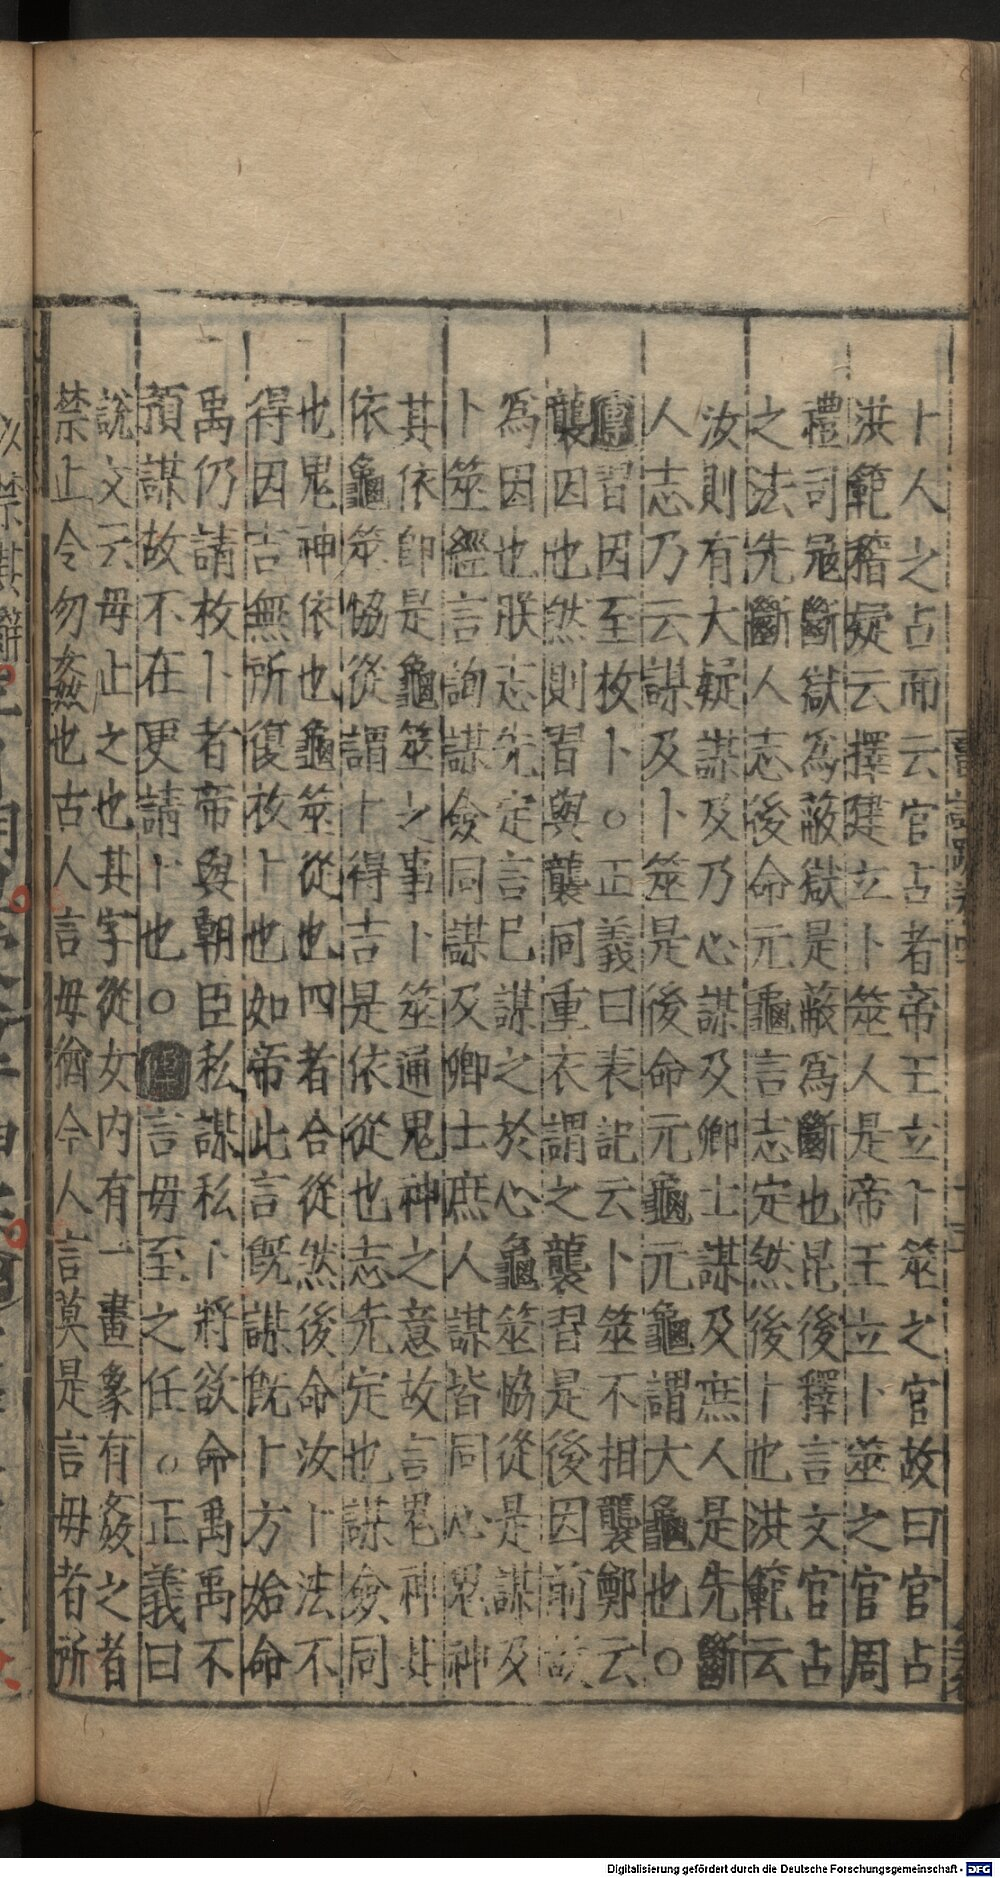 卜人之占而云官占者帝王立卜筮之官故曰官占
洪範稽疑云擇建立卜筮人是帝王立卜筮之官周
禮司冦斷獄為蔽獄是蔽為斷也昆後釋言文官占
之法先斷人志後命元龜言志定然後卜也洪範云
汝則有大疑謀及乃心謀及卿士謀及庶人是先斷
人志乃云謀及卜筮是後命元龜元龜謂大龜也○
傳習因至枚卜○正義曰表記云卜筮不相襲鄭云
襲因也然則習與襲同重衣謂之襲習是後因前故
為因也朕志先定言已謀之於心龜筮恊從是謀及
卜筮經言詢謀僉同謀及卿士庶人謀皆同心鬼神
其依即是龜筮之事卜筮通鬼神之意故言鬼神其
依龜筮恊從謂卜得吉是依從也志先定也謀僉同
也鬼神依也龜筮從也四者合從然後命汝卜法不
得因吉無所復枚卜也如帝此言旣謀旣卜方始命
禹仍請枚卜者帝與朝臣私謀私卜將欲命禹禹不
預謀故不在更請卜也○傳言毋至之任○正義曰
說文云毋止之也其字從女内有一畫象有姦之者
禁止令勿姦也古人言毋猶今人言莫是言毋者所
Digitalisierung gefördert durch die Deutsche Forschungsgemeinschaft - DFG